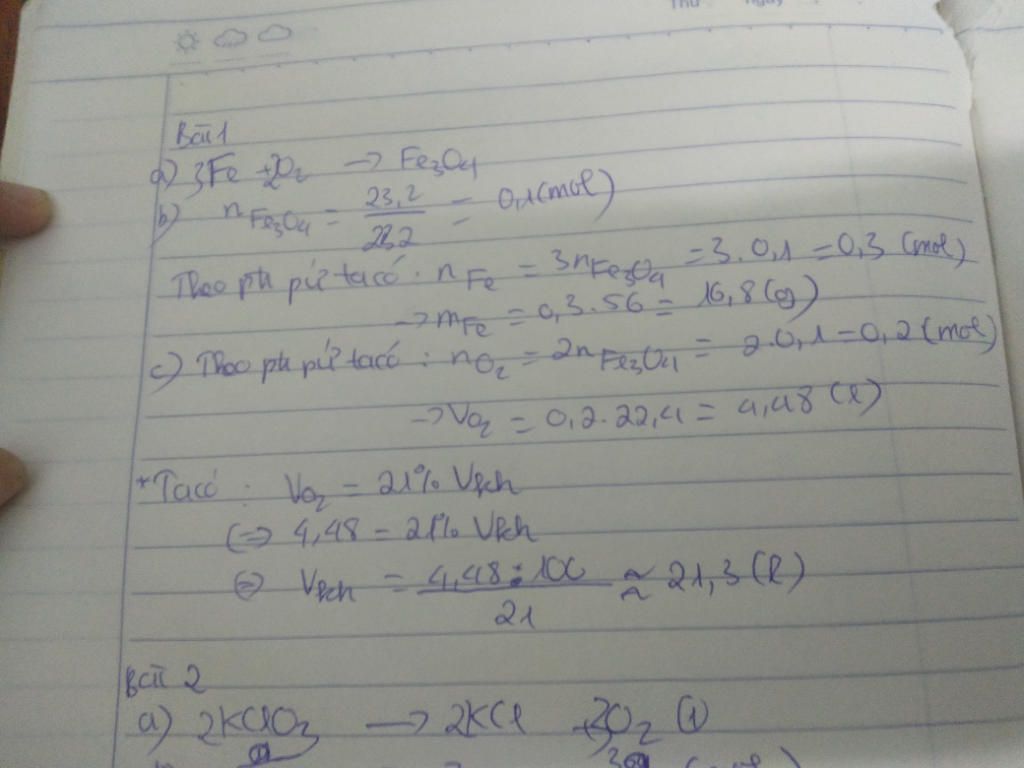 Thứ ngày
Bài 1
a) 3Fe + 2O₂ → Fe₃O₄
b) n Fe₃O₄ = 23,2 / 232 = 0,1 (mol)
Theo pt pứ ta có : n Fe = 3n Fe₃O₄ = 3.0,1 = 0,3 (mol)
→ m Fe = 0,3.56 = 16,8 (g)
c) Theo pt pứ ta có : n O₂ = 2n Fe₃O₄ = 2.0,1 = 0,2 (mol)
→ V O₂ = 0,2.22,4 = 4,48 (l)
* Ta có : V O₂ = 21% Vkk
(=> 4,48 = 21% Vkk
<=> Vkk = 4,48 : 100 / 21 ≈ 21,3 (l)
Bài 2
a) 2KClO₃ → 2KCl + 3O₂ (1)